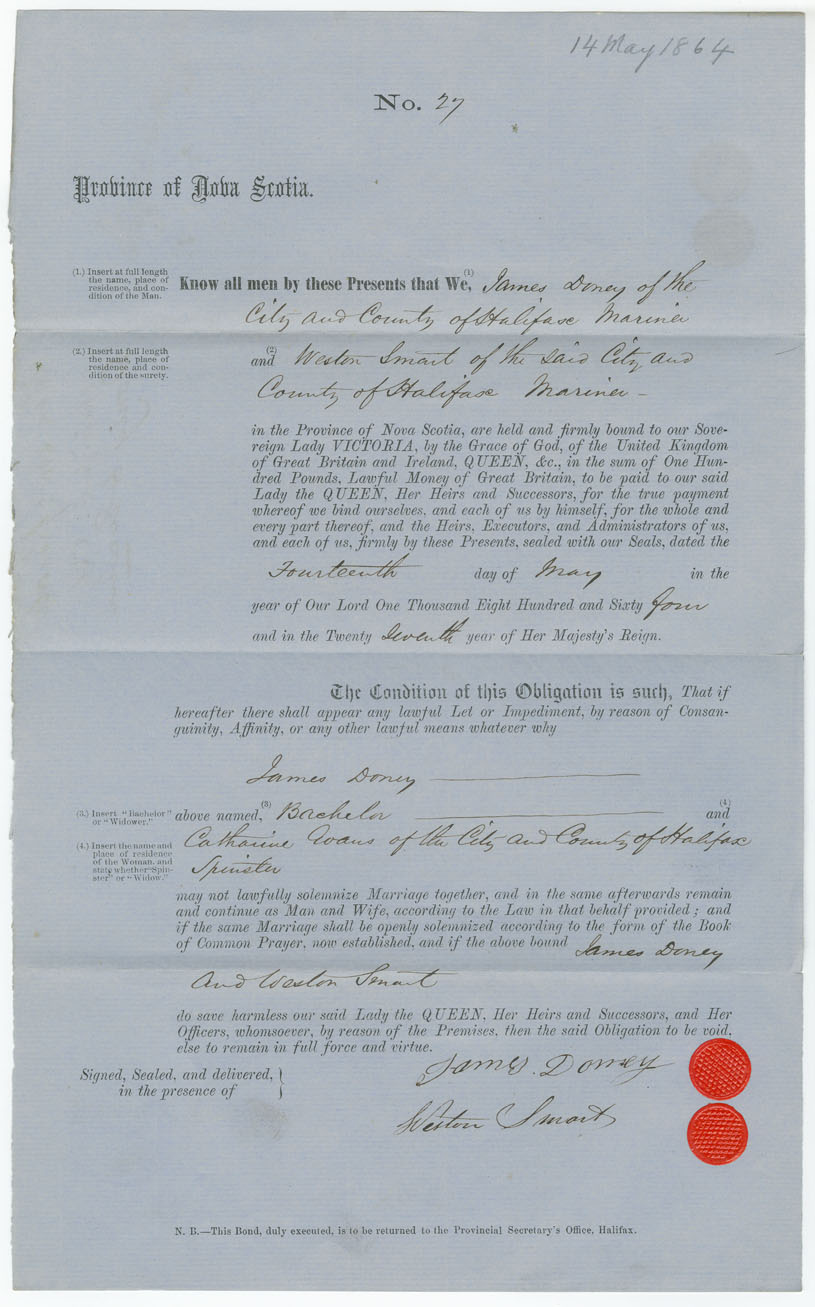 14 May 1864
No. 27
Province of Nova Scotia.
(1.) Insert at full length
the name, place of
residence, and con-
dition of the Man.
Know all men by these Presents that We, (1) James Doney of the
City and County of Halifax Mariner
(2.) Insert at full length
the name, place of
residence and con-
dition of the surety.
and (2) Weston Smart of the said City and
County of Halifax Mariner -
in the Province of Nova Scotia, are held and firmly bound to our Sove-
reign Lady VICTORIA, by the Grace of God, of the United Kingdom
of Great Britain and Ireland, QUEEN, &c., in the sum of One Hun-
dred Pounds, Lawful Money of Great Britain, to be paid to our said
Lady the QUEEN, Her Heirs and Successors, for the true payment
whereof we bind ourselves, and each of us by himself, for the whole and
every part thereof, and the Heirs, Executors, and Administrators of us,
and each of us, firmly by these Presents, sealed with our Seals, dated the
Fourteenth day of May in the
year of Our Lord One Thousand Eight Hundred and Sixty four
and in the Twenty Seventh year of Her Majesty's Reign.
The Condition of this Obligation is such, That if
hereafter there shall appear any lawful Let or Impediment, by reason of Consan-
guinity, Affinity, or any other lawful means whatever why
James Doney
(3.) Insert "Bachelor"
or "Widower."
above named, (3) Bachelor and (4)
(4.) Insert the name and
place of residence
of the Woman, and
state whether "Spin-
ster" or "Widow."
Catharine Wans of the City and County of Halifax
Spinster
may not lawfully solemnize Marriage together, and in the same afterwards remain
and continue as Man and Wife, according to the Law in that behalf provided; and
if the same Marriage shall be openly solemnized according to the form of the Book
of Common Prayer, now established, and if the above bound James Doney
And Weston Smart
do save harmless our said Lady the QUEEN, Her Heirs and Successors, and Her
Officers, whomsoever, by reason of the Premises, then the said Obligation to be void,
else to remain in full force and virtue.
Signed, Sealed, and delivered,
in the presence of
James. Doney
Weston Smart
N. B.—This Bond, duly executed, is to be returned to the Provincial Secretary's Office, Halifax.